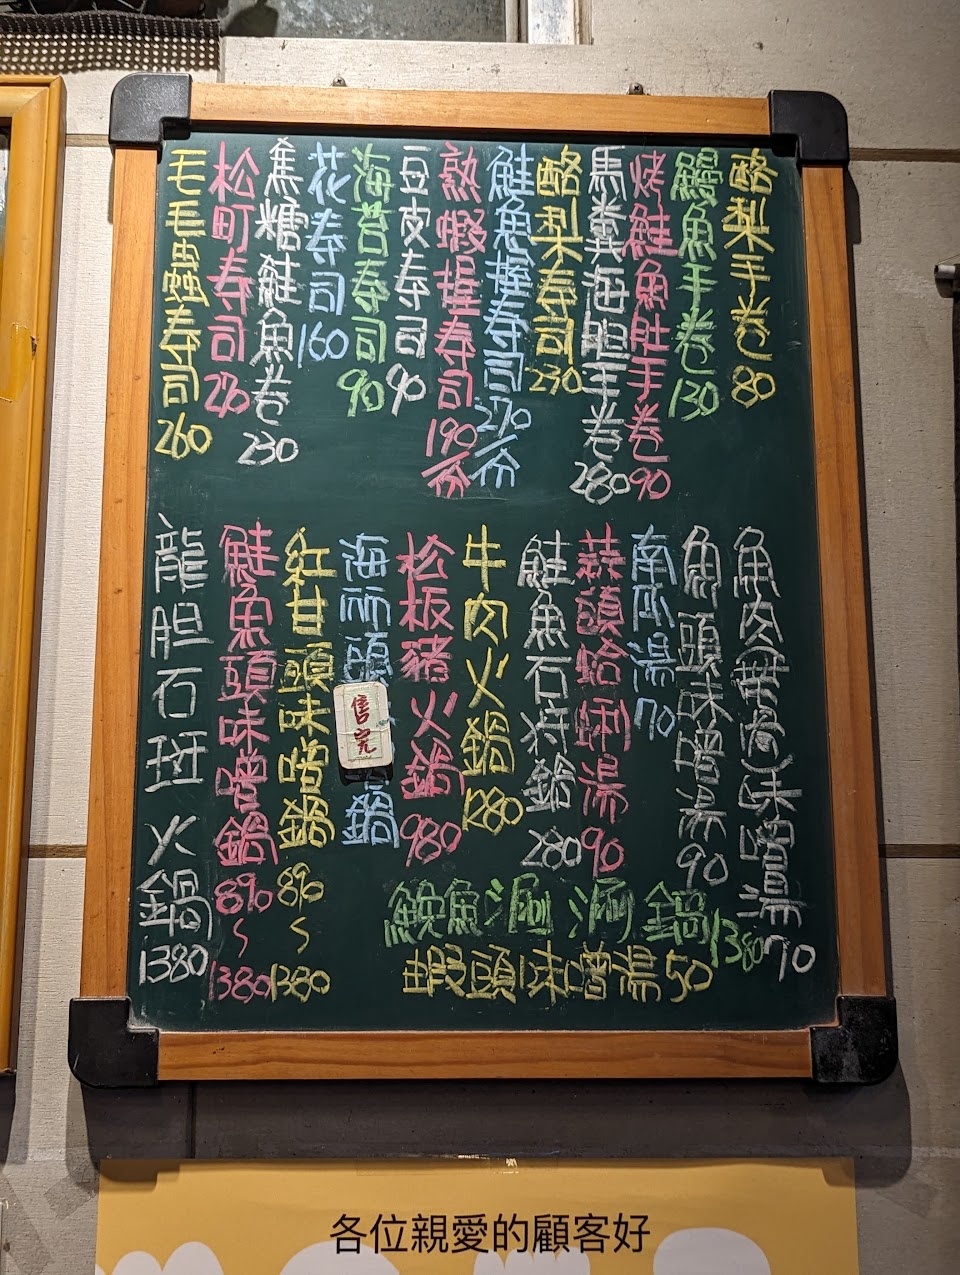 酪梨手卷80
鰻魚手卷130
烤鮭魚肚手卷90
馬糞海胆手卷280
酪梨寿司230
鮭魚握寿司270/份
熟蝦握寿司190/份
豆皮寿司90
海苔寿司90
花寿司160
焦糖鮭魚卷230
松町寿司210
毛毛蟲寿司260
魚肉(帶骨)味噌湯70
魚頭味噌湯90
南瓜湯70
蒜頭蛤蜊湯90
鮭魚石狩鍋280
牛肉火鍋1280
松板豬火鍋980
海
頭
鍋
售完
紅甘頭味噌鍋890~1380
鮭魚頭味噌鍋890~1380
龍胆石斑火鍋1380
鮸魚涮涮鍋1380
蝦頭味噌湯50
各位親愛的顧客好